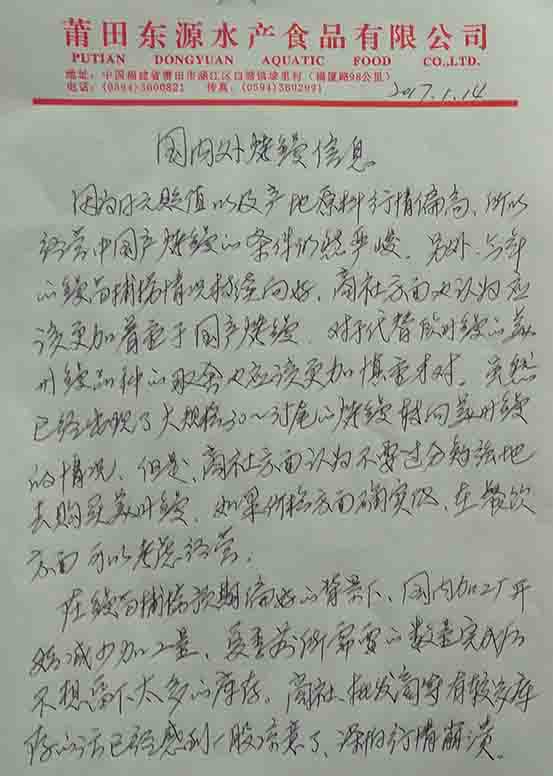 莆田东源水产食品有限公司
PUTIAN DONGYUAN AQUATIC FOOD CO.,LTD.
地址：中国福建省莆田市涵江区白塘镇埭里村（福厦路98公里）
电话：(0594)3600821 传真：(0594)3602991
2017.1.14
国内外烤鳗信息
因为日元贬值以及产地原料行情偏高、所以
经营中国产烤鳗的条件仍然严峻。另外、今年
的鳗苗捕捞情况持续向好、商社方面也认为应
该更加着重于国产烤鳗、对于代替欧洲鳗的美
洲鳗品种的取舍也应该更加慎重才对。虽然
已经出现了大规格30～尾的烤鳗转向美洲鳗
的情况、但是、商社方面认为不要过分勉强地
去购买美洲鳗、如果价格方面确实低、在餐饮
方面可以考虑经营。
在鳗苗捕捞预期偏好的背景下、国内加工厂开
始减少加工量、夏季前所需要的数量完成后
不想留下太多的库存。商社、批发商等有较多库
存的话已经感到一股凉意了、深怕行情崩溃。